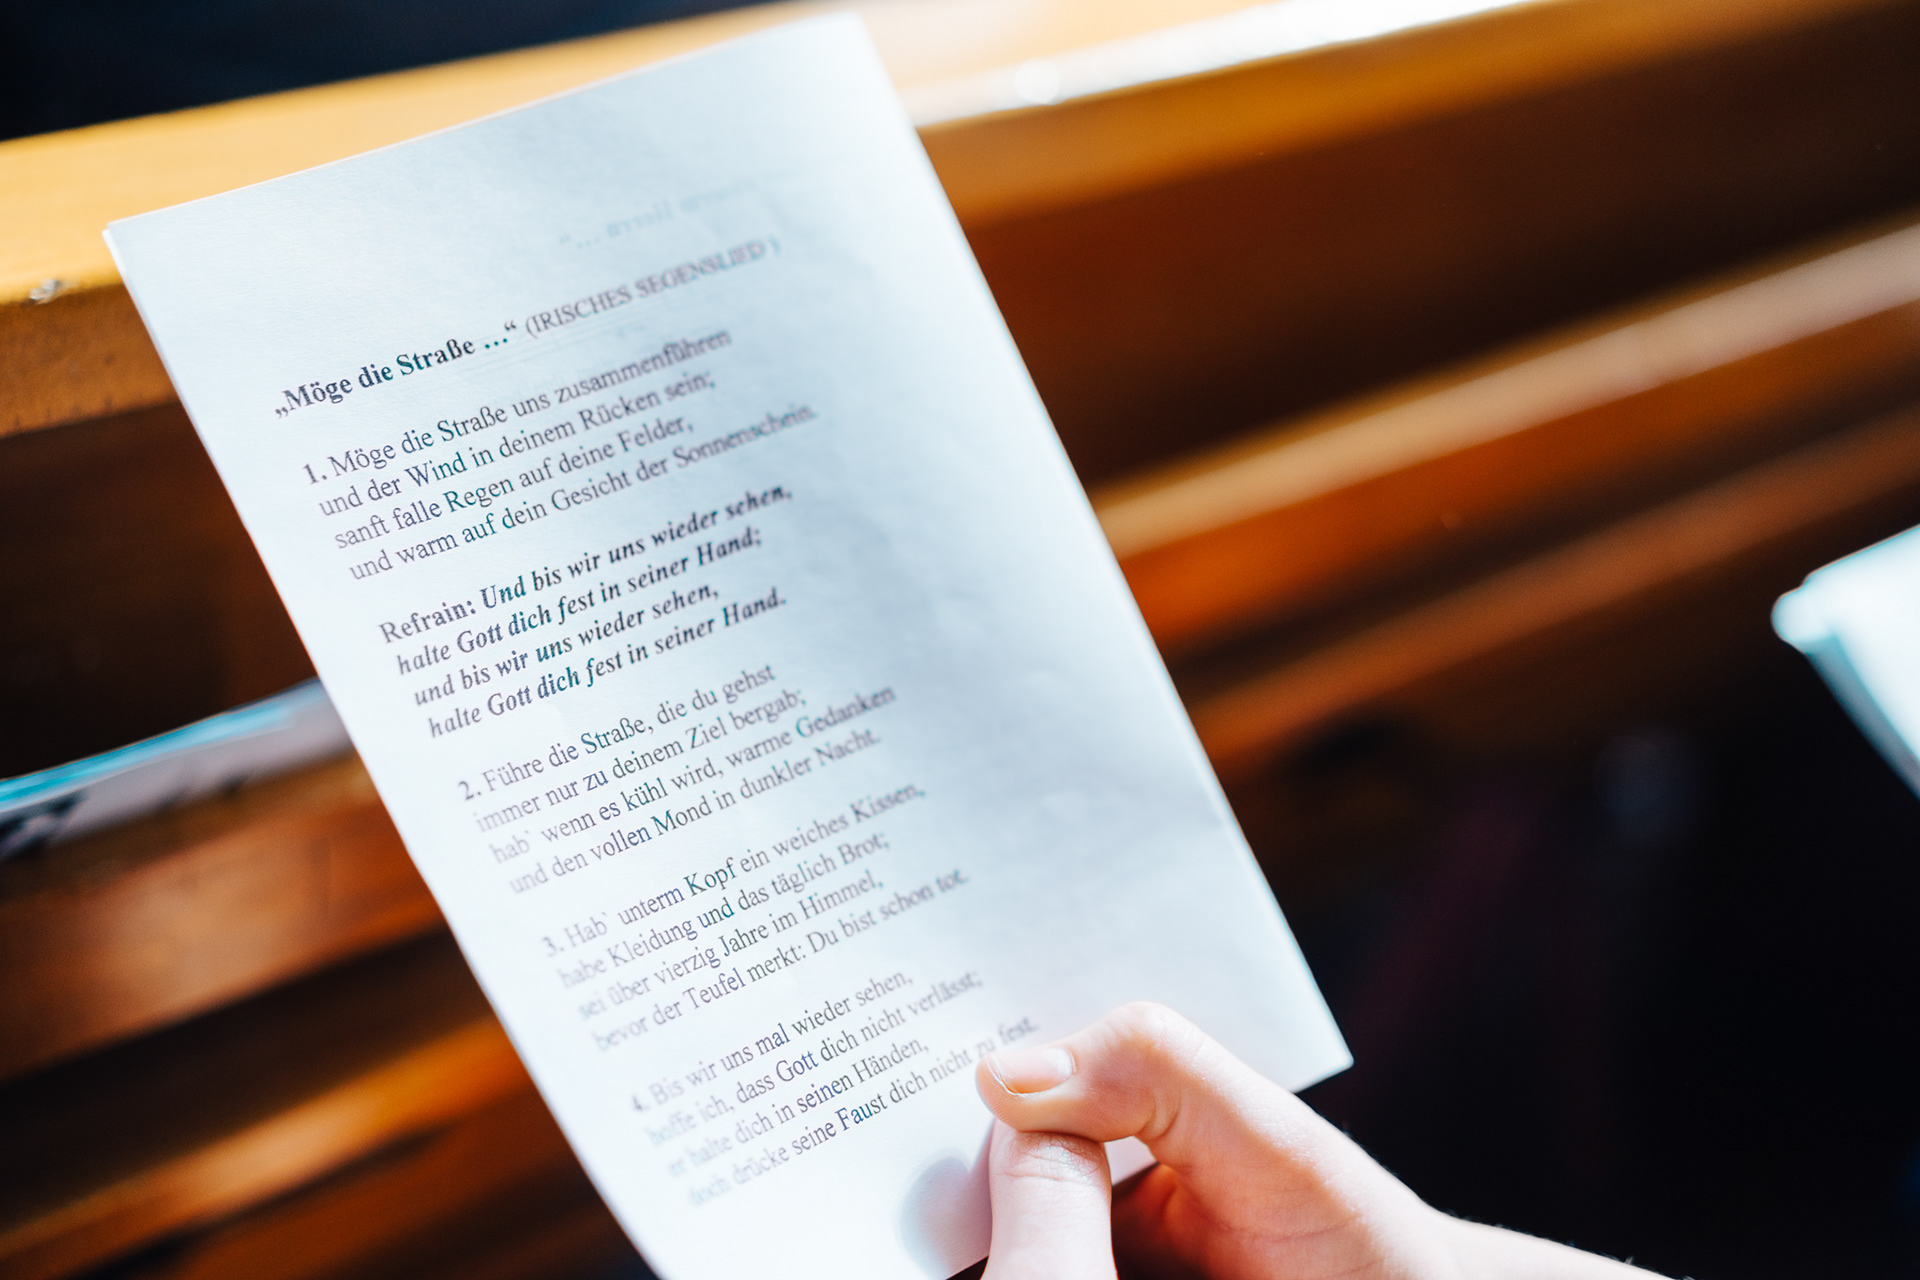 „Möge die Straße ...“ (IRISCHES SEGENSLIED )
1. Möge die Straße uns zusammenführen
und der Wind in deinem Rücken sein;
sanft falle Regen auf deine Felder,
und warm auf dein Gesicht der Sonnenschein.
Refrain: Und bis wir uns wieder sehen,
halte Gott dich fest in seiner Hand;
und bis wir uns wieder sehen,
halte Gott dich fest in seiner Hand.
2. Führe die Straße, die du gehst
immer nur zu deinem Ziel bergab;
hab` wenn es kühl wird, warme Gedanken
und den vollen Mond in dunkler Nacht.
3. Hab` unterm Kopf ein weiches Kissen,
habe Kleidung und das täglich Brot;
sei über vierzig Jahre im Himmel,
bevor der Teufel merkt: Du bist schon tot.
4. Bis wir uns mal wieder sehen,
hoffe ich, dass Gott dich nicht verlässt;
er halte dich in seinen Händen,
doch drücke seine Faust dich nicht zu fest.